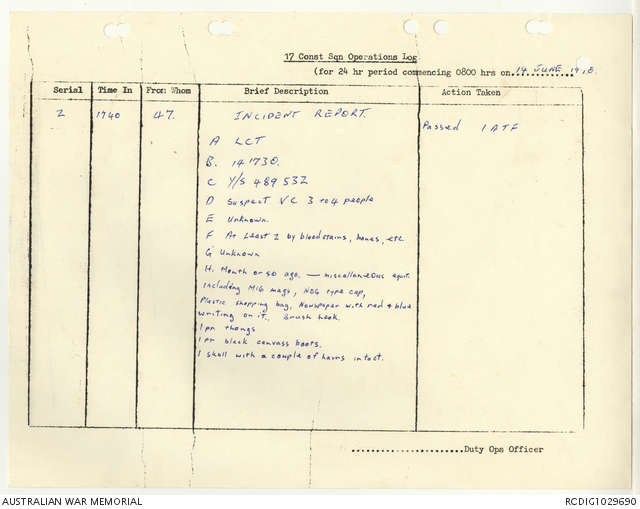 17 Const Sqn Operations Log
(for 24 hr period commencing 0800 hrs on 14 JUNE 19
Serial Time In From Whom Brief Description Action Taken
2 1740 47. INCIDENT REPORT. Passed 1ATF
A LCT
B. 141730.
C Y/S 489532
D Suspect VC 3 to 4 people
E Unknown.
F At least 2 by bloodstains, bones, etc
G Unknown
H. Month or so ago. — miscellaneous eqpt.
Including M16 mags, type cap,
Plastic shopping bag, Newspaper with red & blue
writing on it. Brush hook.
1 pr thongs
1 pr black canvass boots.
1 skull with a couple of intact.
Duty Ops Officer
AUSTRALIAN WAR MEMORIAL
RCDIG1029690